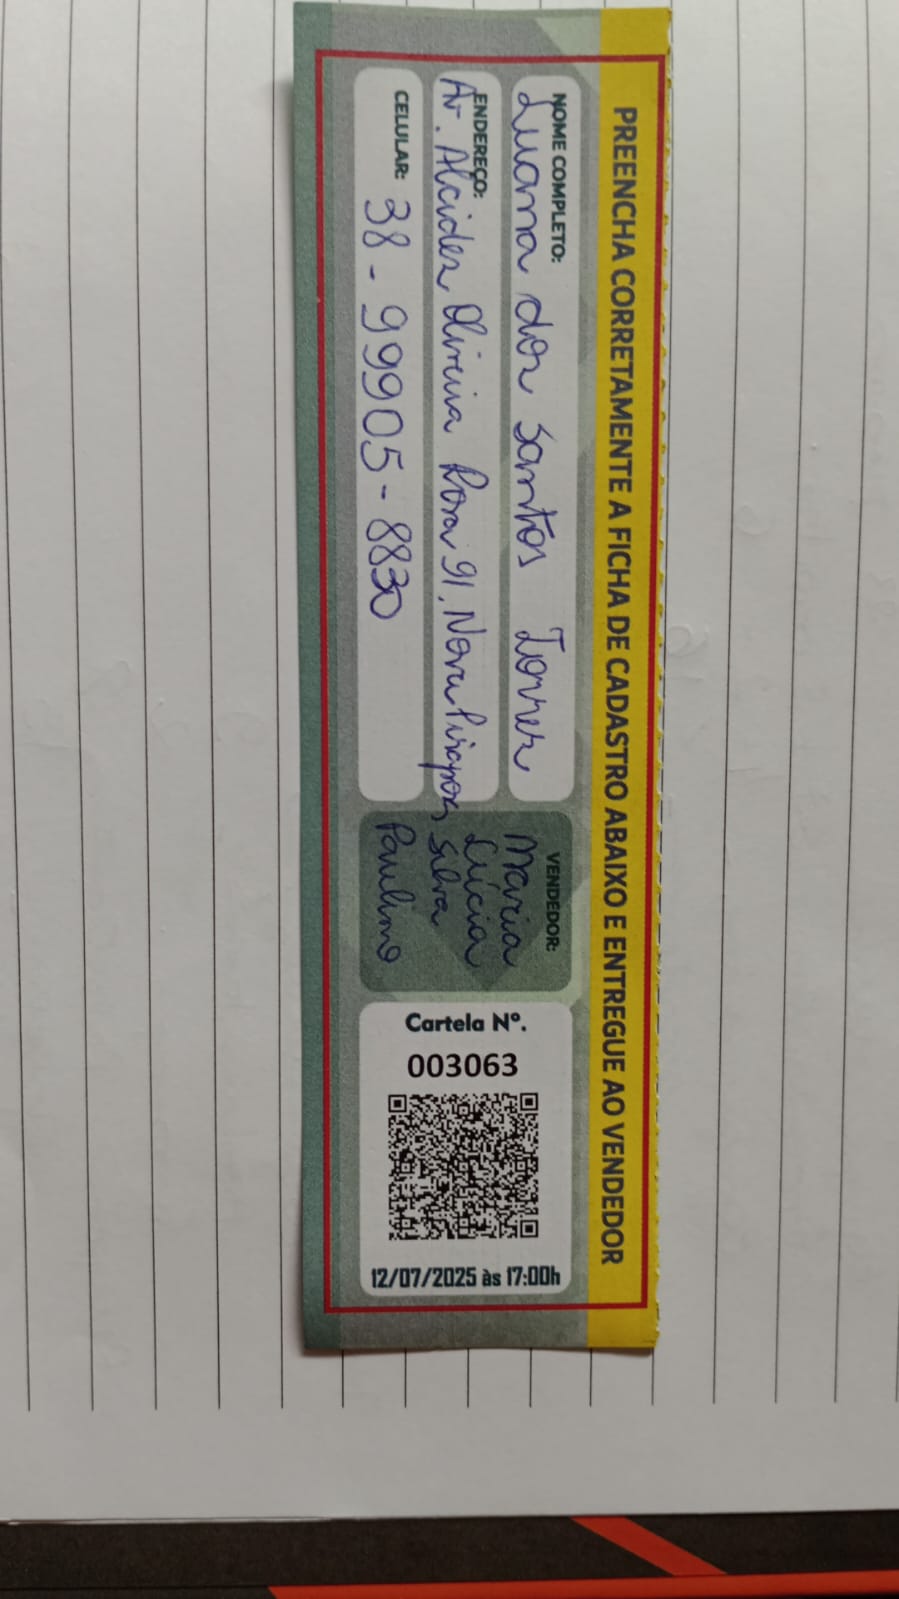 PREENCHA CORRETAMENTE A FICHA DE CADASTRO ABAIXO E ENTREGUE AO VENDEDOR
NOME COMPLETO:
Luana dos Santos Torres
ENDEREÇO:
Av. Alcides Oliveira Rosa 91. Nova Pirapora
CELULAR: 38-99905-8830
VENDEDOR:
Maria
Lúcia
Silva
Paulino
Cartela Nº.
003063
12/07/2025 às 17:00h